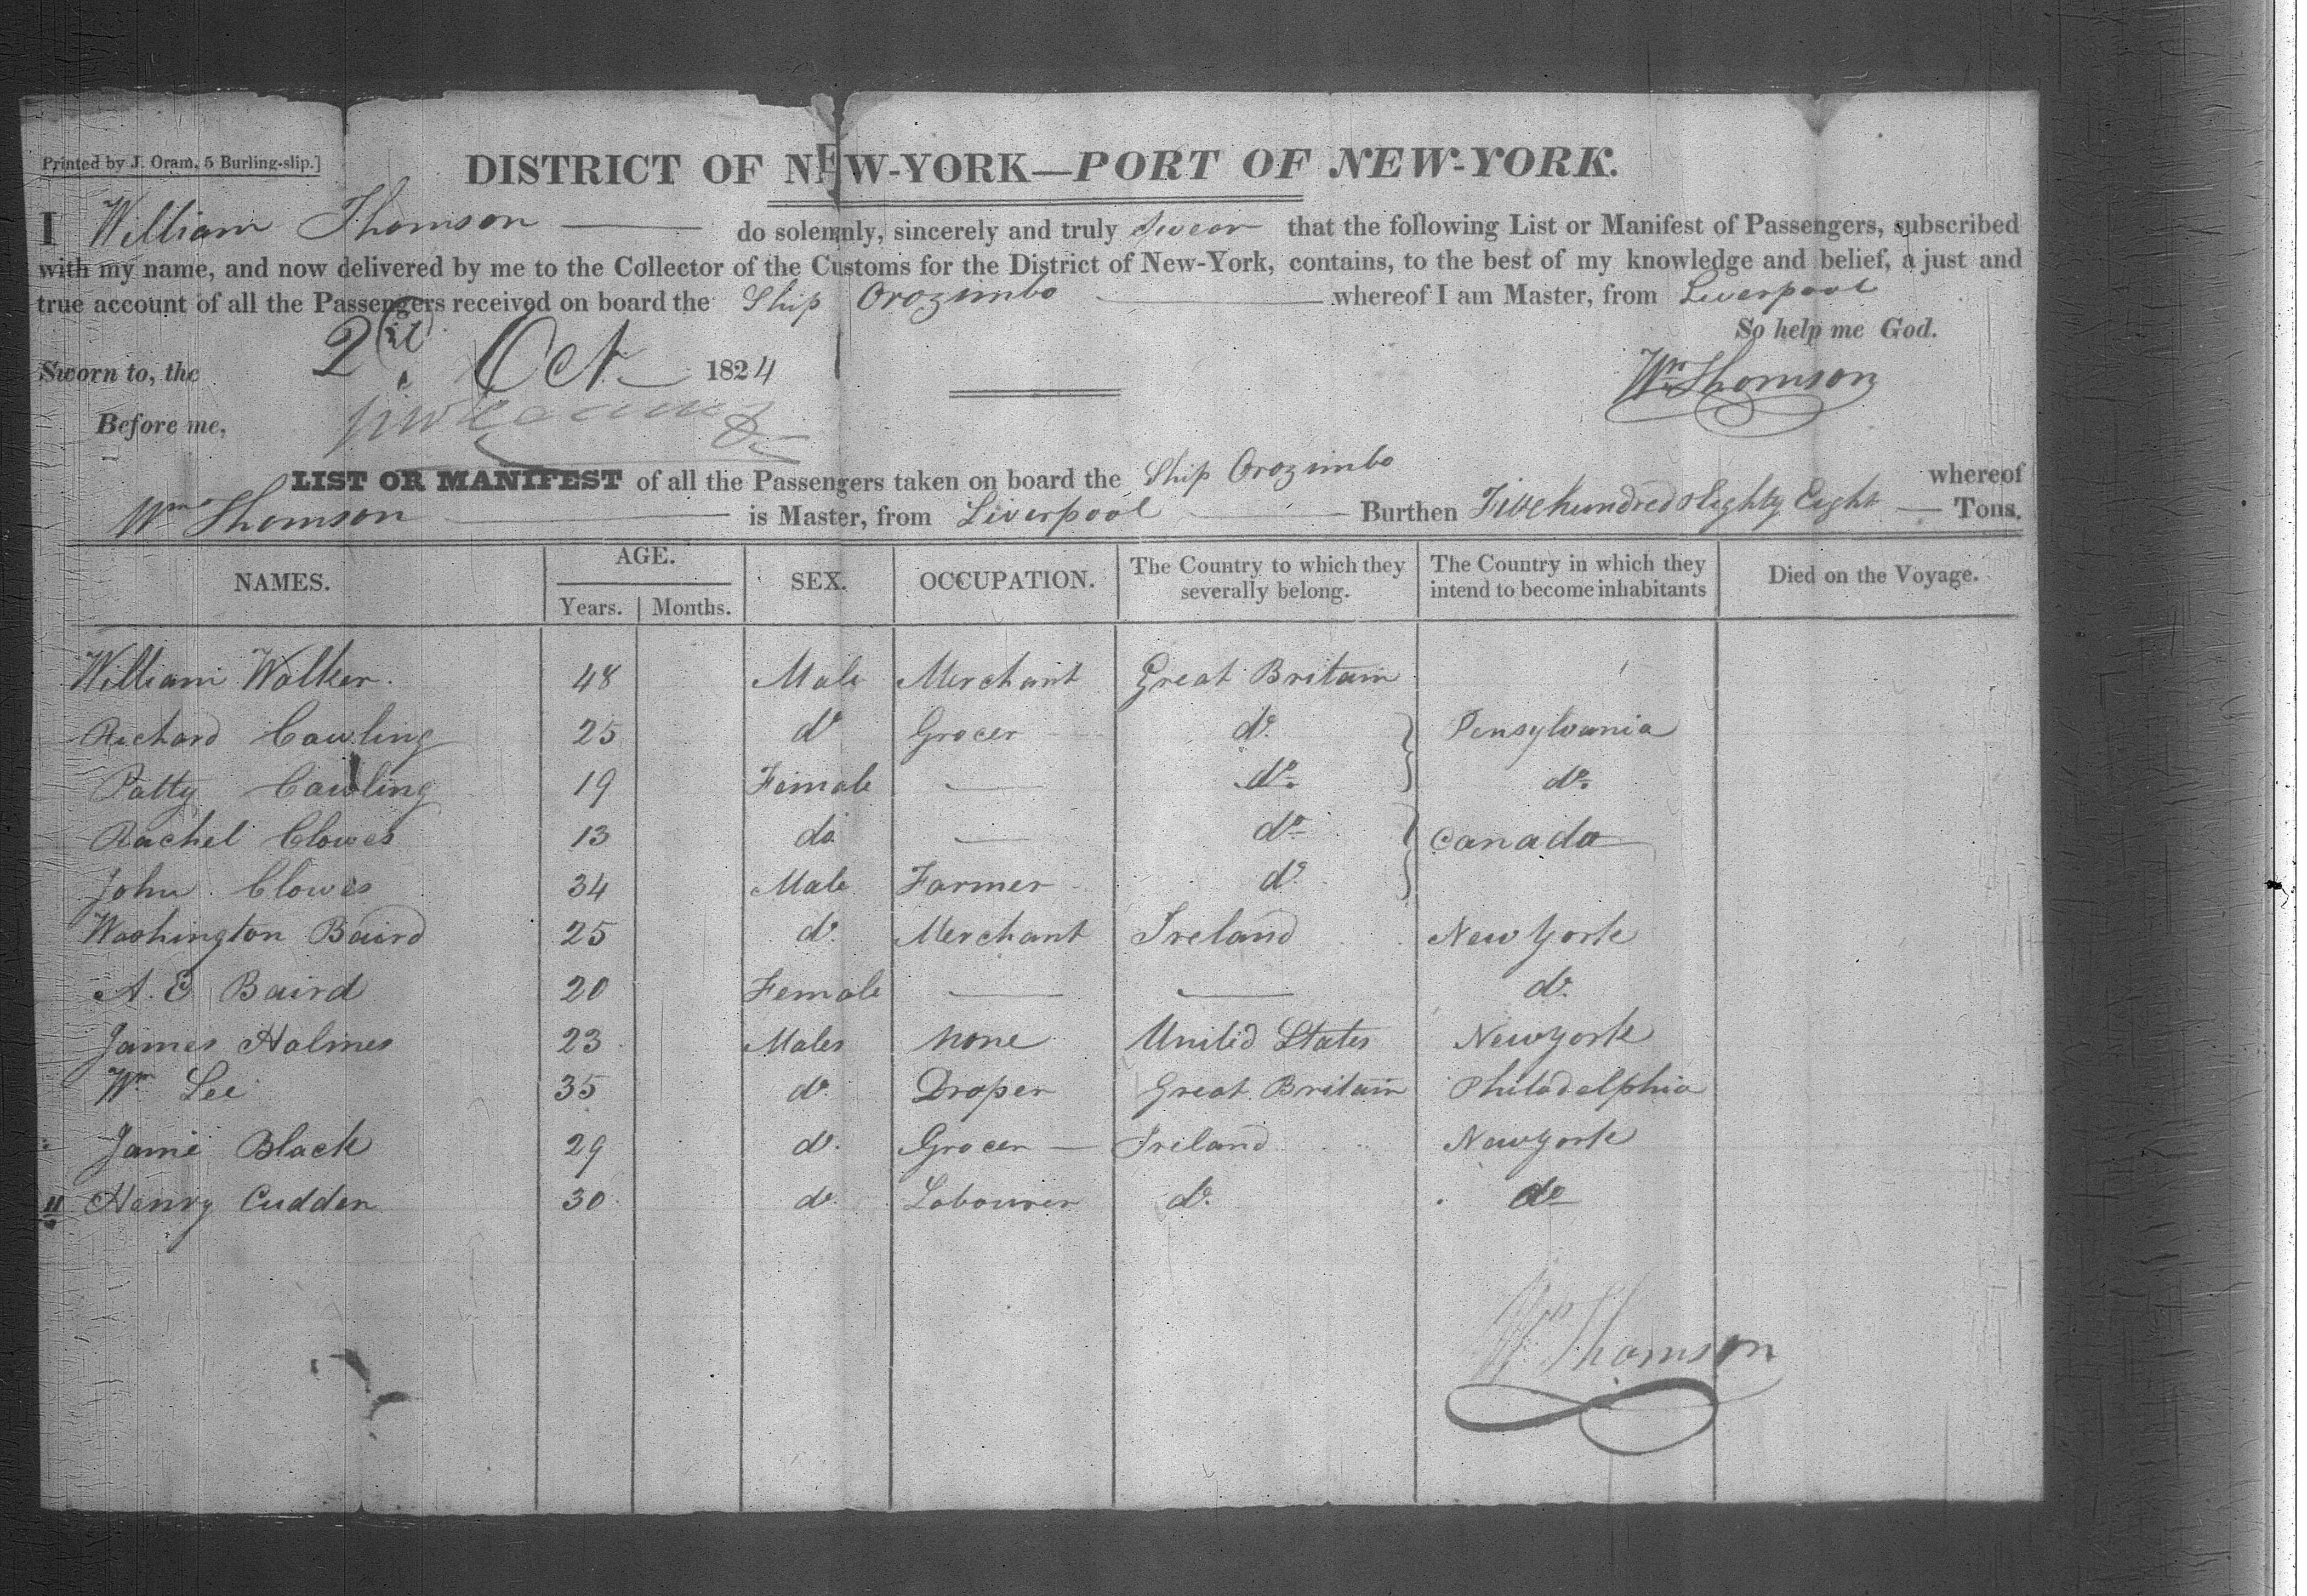 Printed by J. Oram, 5 Burling-slip.]
DISTRICT OF NEW-YORK—PORT OF NEW-YORK.
I William Thomson do solemnly, sincerely and truly swear that the following List or Manifest of Passengers, subscribed
with my name, and now delivered by me to the Collector of the Customs for the District of New-York, contains, to the best of my knowledge and belief, a just and
true account of all the Passengers received on board the Ship Orozimbo whereof I am Master, from Liverpool
So help me God.
Sworn to, the 2d Oct 1824
Wm Thomson
Before me,
LIST OR MANIFEST of all the Passengers taken on board the Ship Orozimbo whereof
Wm Thomson is Master, from Liverpool Burthen Five hundred & Eighty Eight Tons.
NAMES. AGE. Years. Months. SEX. OCCUPATION. The Country to which they severally belong. The Country in which they intend to become inhabitants Died on the Voyage.
William Walker. 48 Male Merchant Great Britain
Richard Cowling 25 do Grocer do Pensylvania
Patty Cowling 19 Female — do do
Rachel Clowes 13 do — do Canada
John Clowes 34 Male Farmer do
Washington Baird 25 do Merchant Ireland New York
A. E Baird 20 Female — — do
James Holmes 23 Males none United States New york
Wm Lee 35 do Draper Great Britain Philadelphia
Jame Black 29 do Grocer — Ireland New york
11 Henry Cudden 30 do Labourer do do
Wm Thomson